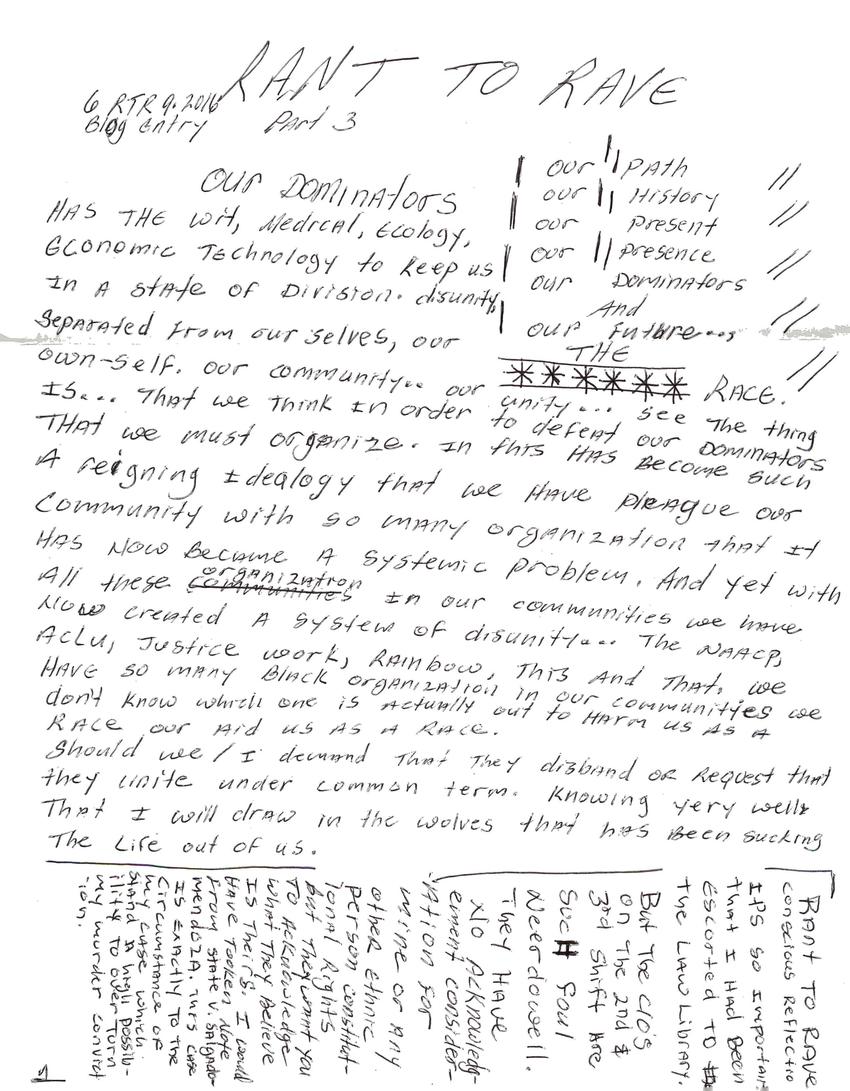 RANT TO RAVE
6 RTR 9.2016
Blog Entry Part 3
OUR DOMINATORS
HAS THE WIT, MEDICAL, ECOLOGY,
ECONOMIC TECHNOLOGY to keep us
IN A STATE OF DIVISION. disunity,
Separated from our selves, our
own-self. our community... our
our PATH
our History
our Present
our Presence
our DOMINATORS
And
our Future....
THE
****** RACE.
unity... see The thing
IS... THAT we THINK IN order to defeat our DOMINATORS
THAT we must organize. In this HAS Become such
A reigning Idealogy that we HAVE pleague our
Community with so many organization that It
HAS NOW Became A Systemic problem. And yet with
All these communities organization In our communities we have
Now created A system of disunity... The NAACP,
ACLU, Justice work, RAINBOW, This And That. we
HAVE so many Black organization in our communities we
don't know which one is Actually out to HARM us AS A
RACE our Aid us AS A RACE.
Should we/I demand That They disband or Request that
they unite under common term. Knowing very well
That I will draw in the wolves that has Been sucking
The Life out of us.
RANT TO RAVE
conscious Reflectio
IT'S SO Important
that I Had Been
Escorted TO
the LAW Library
But The C/O's
on The 2nd &
3rd Shift Are
Such foul
Neerdowell.
They HAVE
No Acknowledg-
ement consider-
ation for
mine or Any
other ethnic
person constitut-
ional Rights
But They want you
To Acknowledge
what They Believe
Is Theirs. I would
Have Tooken Note
from State v. Salgado-
Mendoza. This case
IS Exactly To the
Circumstance of
my case which
stand A High possib-
ility To over Turn
my murder convict
-ion.
1